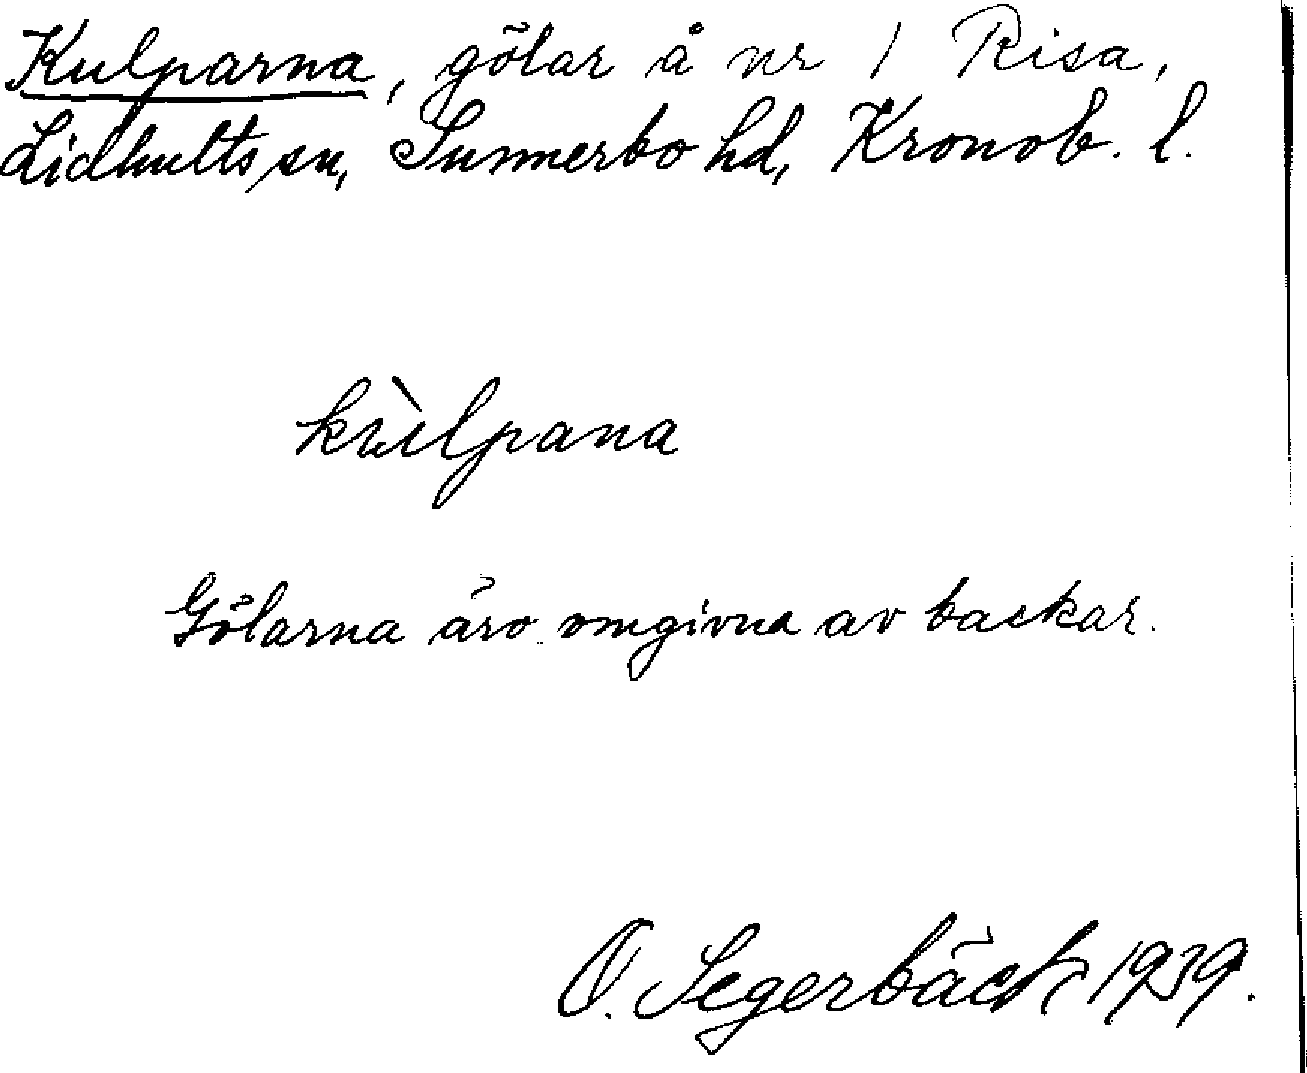 Kulparna, gölar å nr 1 Risa,
Lidhults sn, Sunnerbo hd, Kronob. l.
kùlpana
Gölarna äro omgivna av backar.
O. Segerbäck 1939.